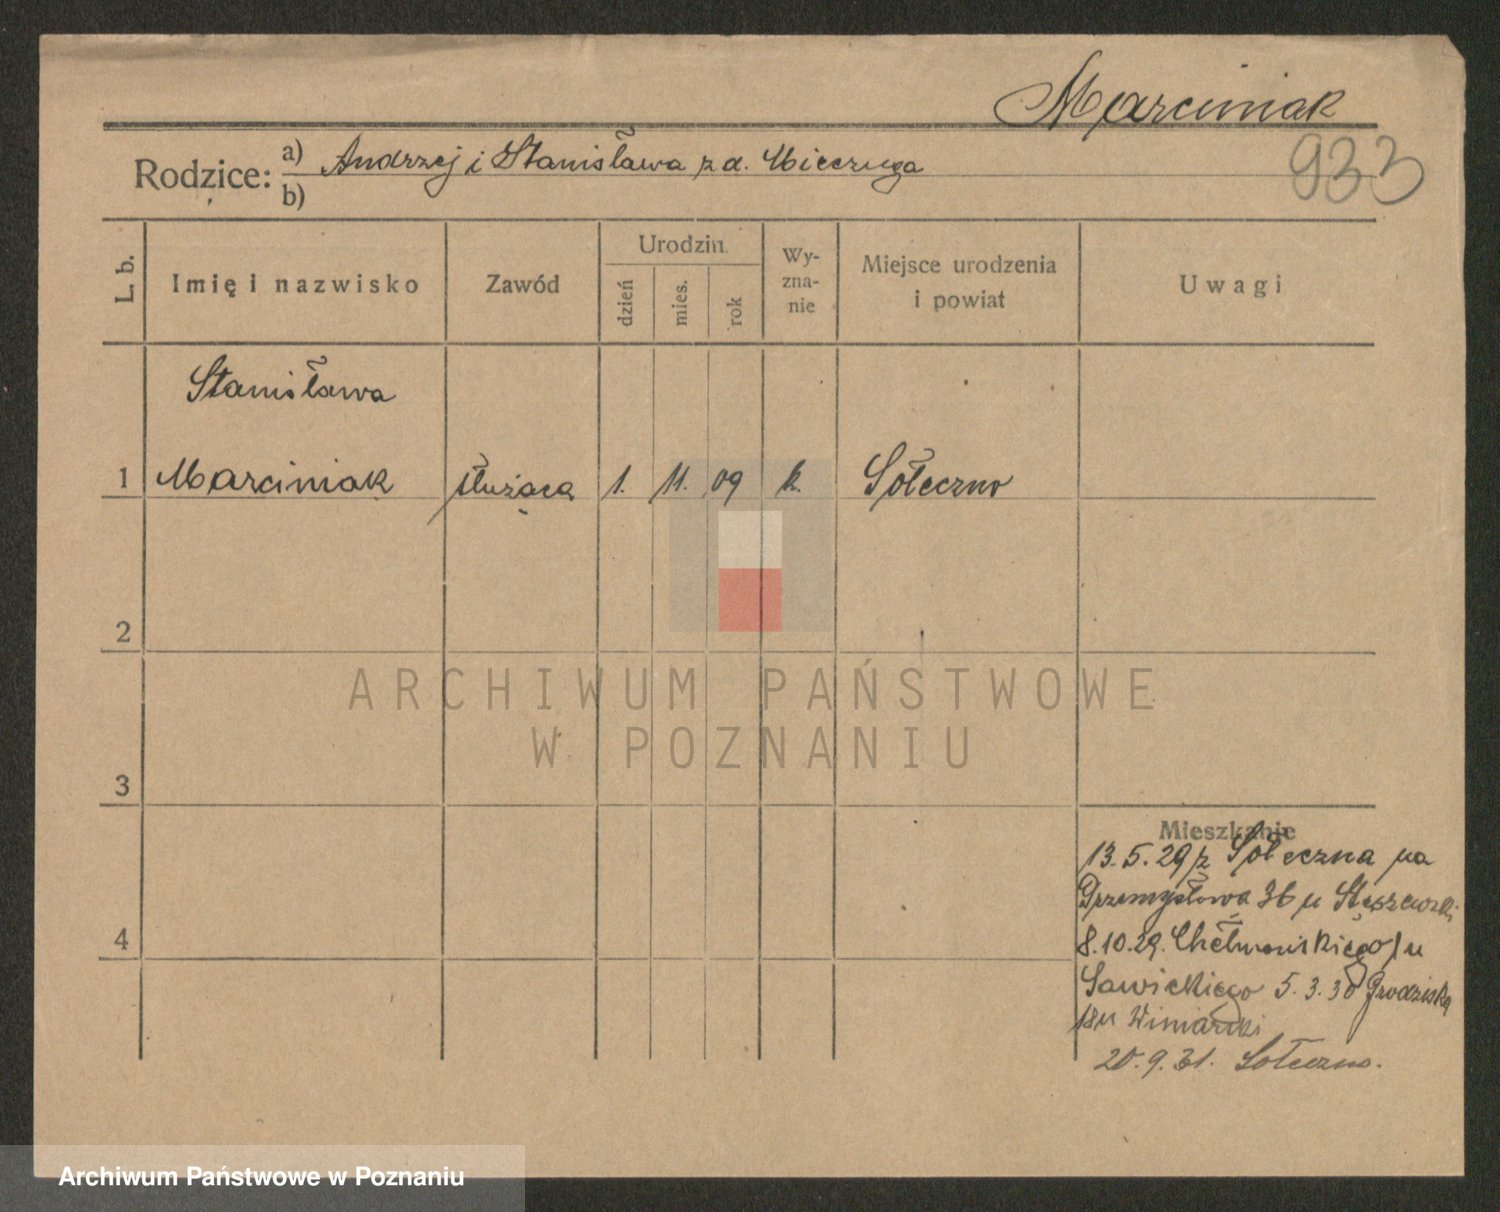 Marciniak
933
Rodzice: a) Andrzej i Stanisława z d. Mieczuga
b)
L. b.
Imię i nazwisko
Zawód
Urodzin.
dzień
mies.
rok
Wy-
zna-
nie
Miejsce urodzenia
i powiat
Uwagi
Stanisława
1 Marciniak służąca 1. 11. 09 k. Sołeczno
2
ARCHIWUM PAŃSTWOWE
W POZNANIU
3
Mieszkanie
13.5.29 z Sołeczna na
Przemysłowa 36 u Stęszewski
4
8.10.29. Chełmońskiego u
Sawickiego 5.3.30 Grodziska
18 u Winiarski
20.9.31. Sołeczno.
Archiwum Państwowe w Poznaniu